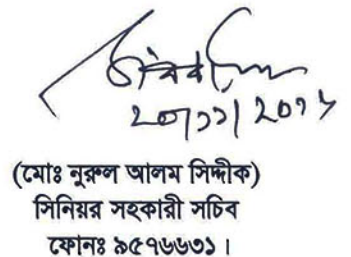 ২০/১১/২০১৮
(মোঃ নুরুল আলম সিদ্দীক)
সিনিয়র সহকারী সচিব
ফোনঃ ৯৫৭৬৬৩১।